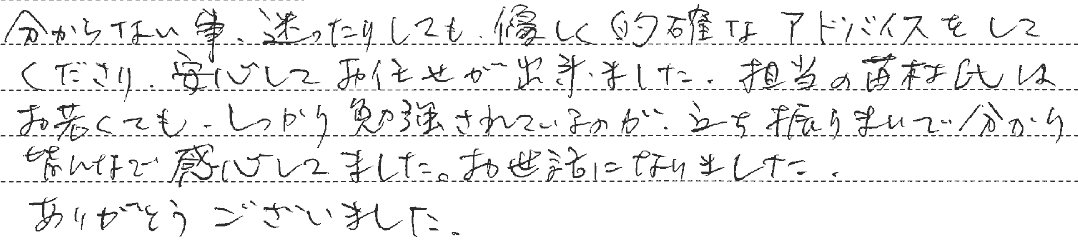 分からない事、迷ったりしても、優しく的確なアドバイスをして
くださり、安心してお任せが出来ました。担当の苗村氏は
お若くても、しっかり勉強されているのが、立ち振りまいで分かり
皆んなで感心してました。お世話になりました。
ありがとうございました。